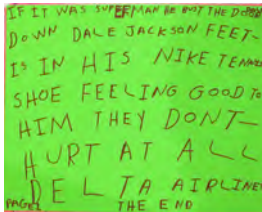 IF IT WAS SUPERMAN HE BUT THE DOOR
DOWN DALE JACKSON FEET-
IS IN HIS NIKE TENNIS
SHOE FEELING GOOD TO
HIM THEY DONT-
HURT AT ALL
DELTA AIRLINES
PAGE2 THE END